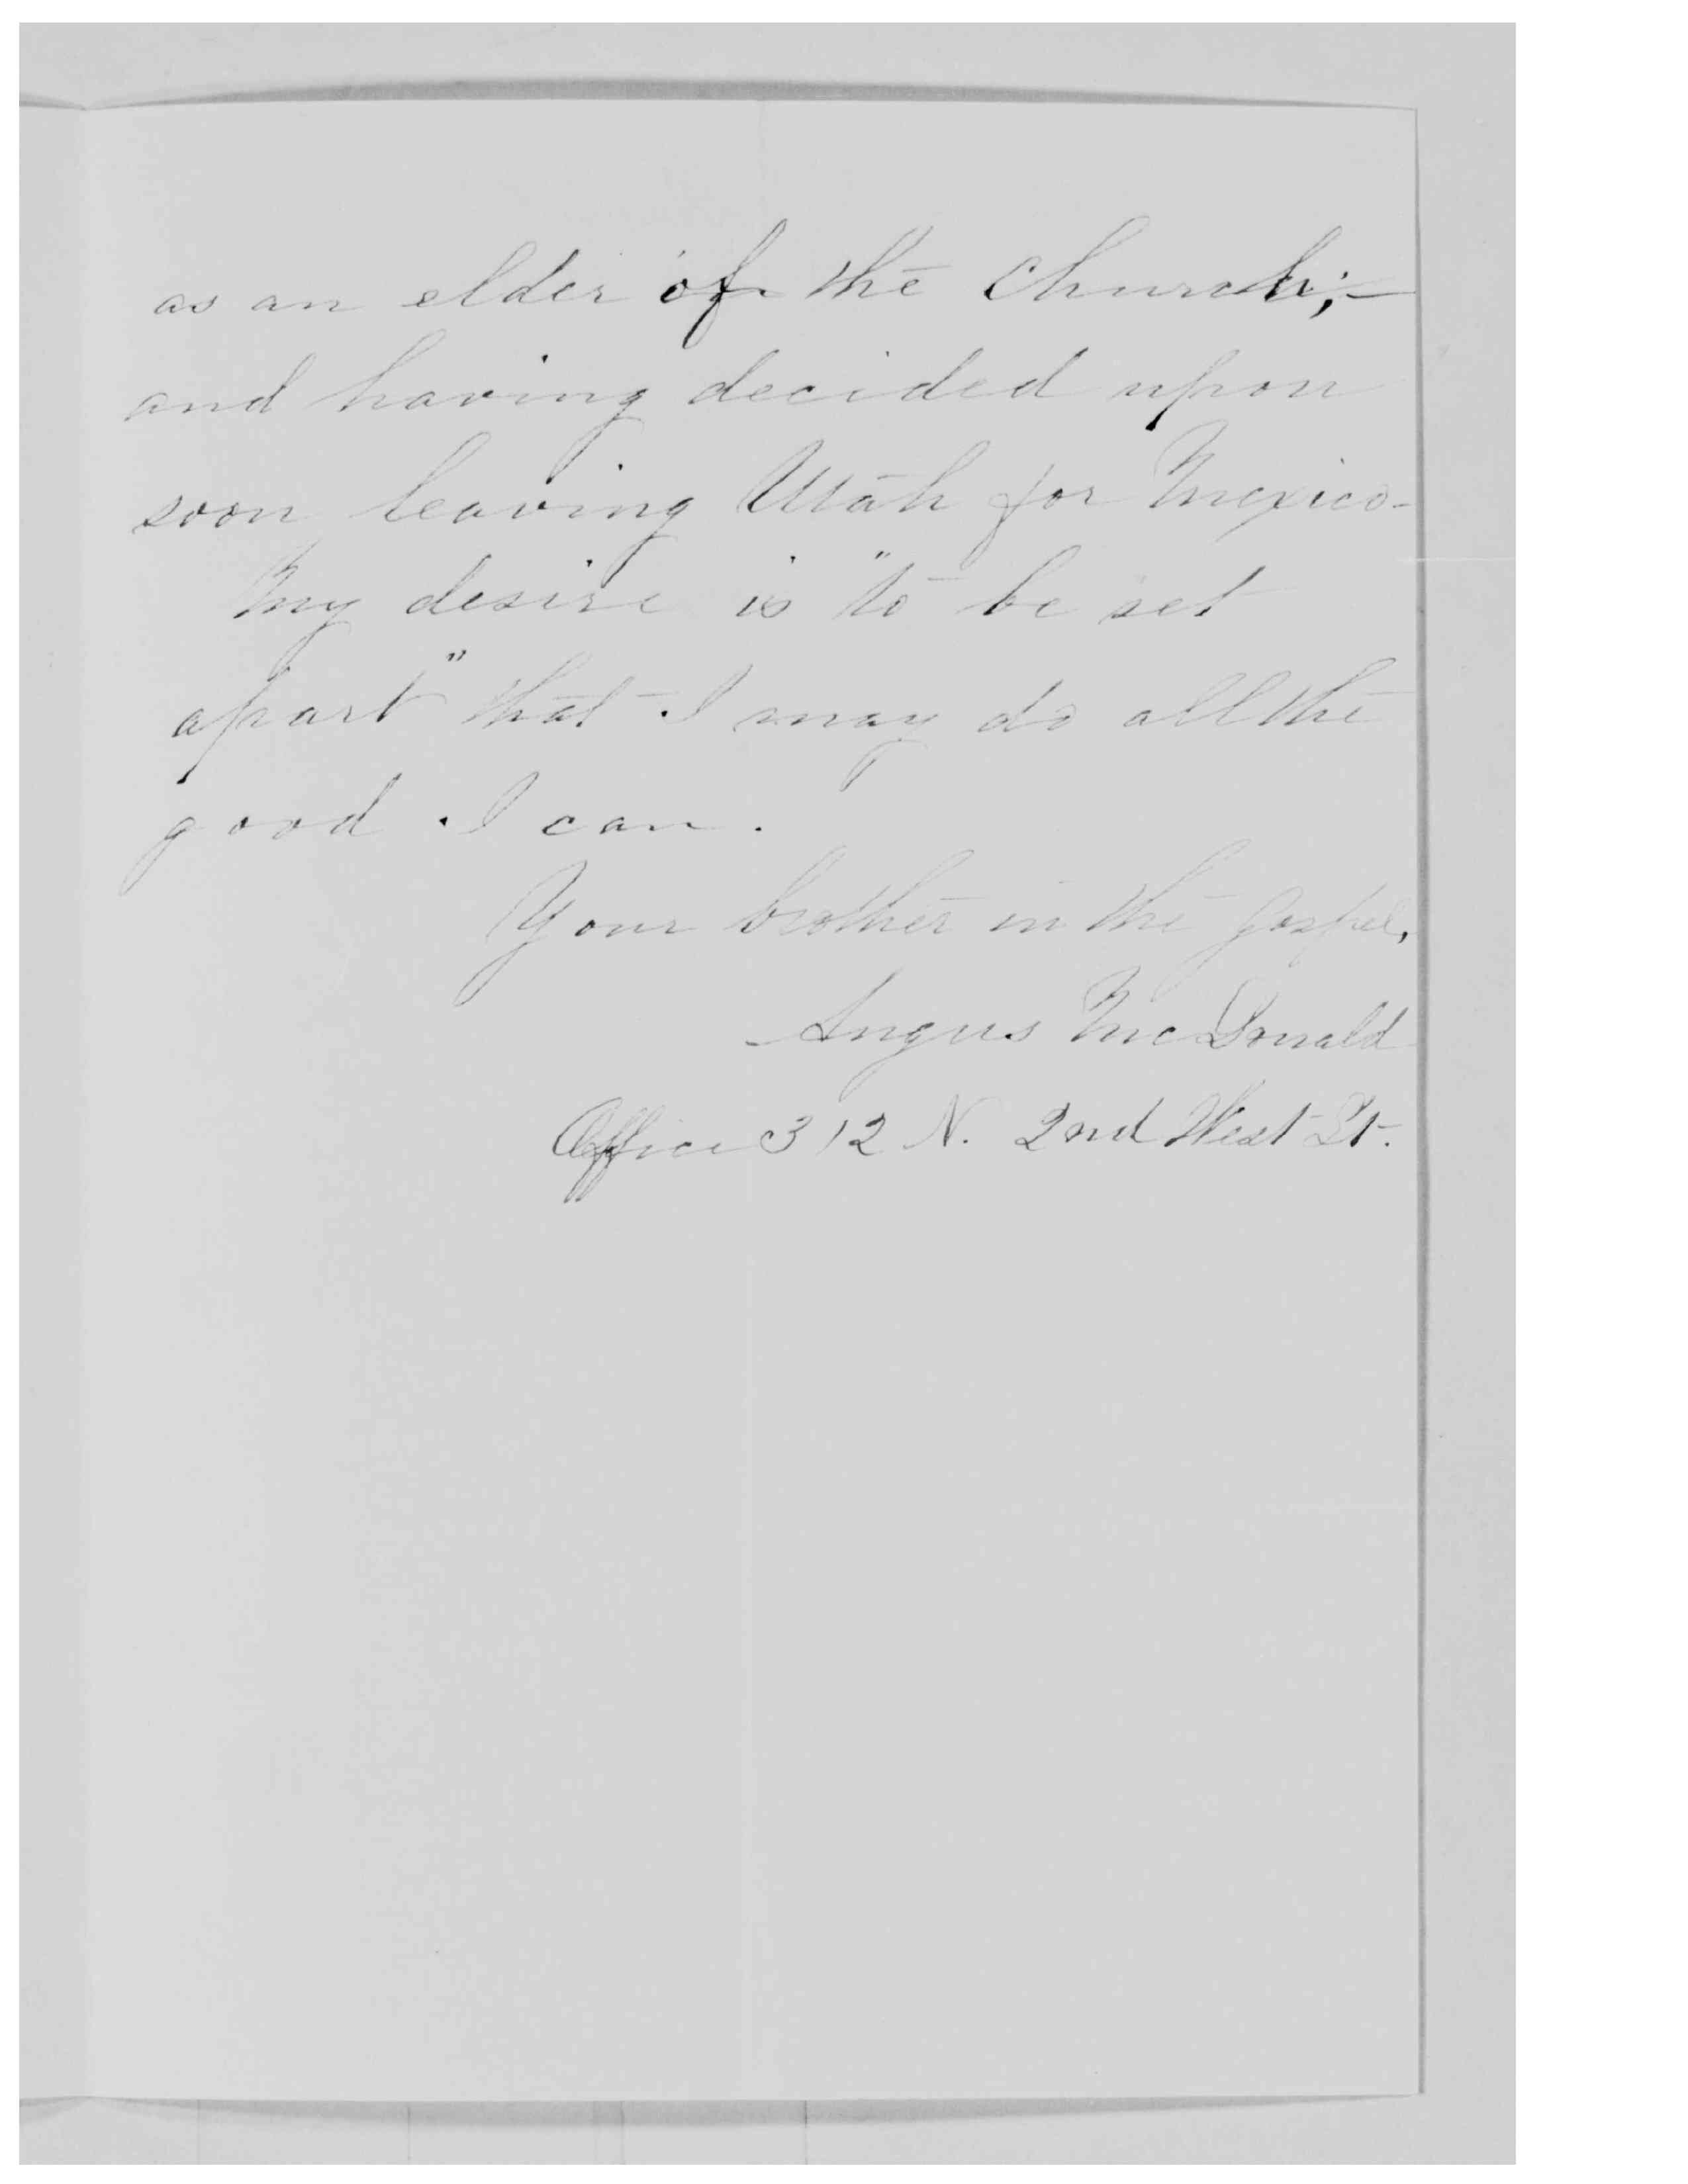 as an elder of the Church;—
and having decided upon
soon leaving Utah for Mexico-
My desire is "to be set
apart" that I may do all the
good I can.
Your brother in the gospel,
Angus McDonald
Office 312 N. 2nd West St.